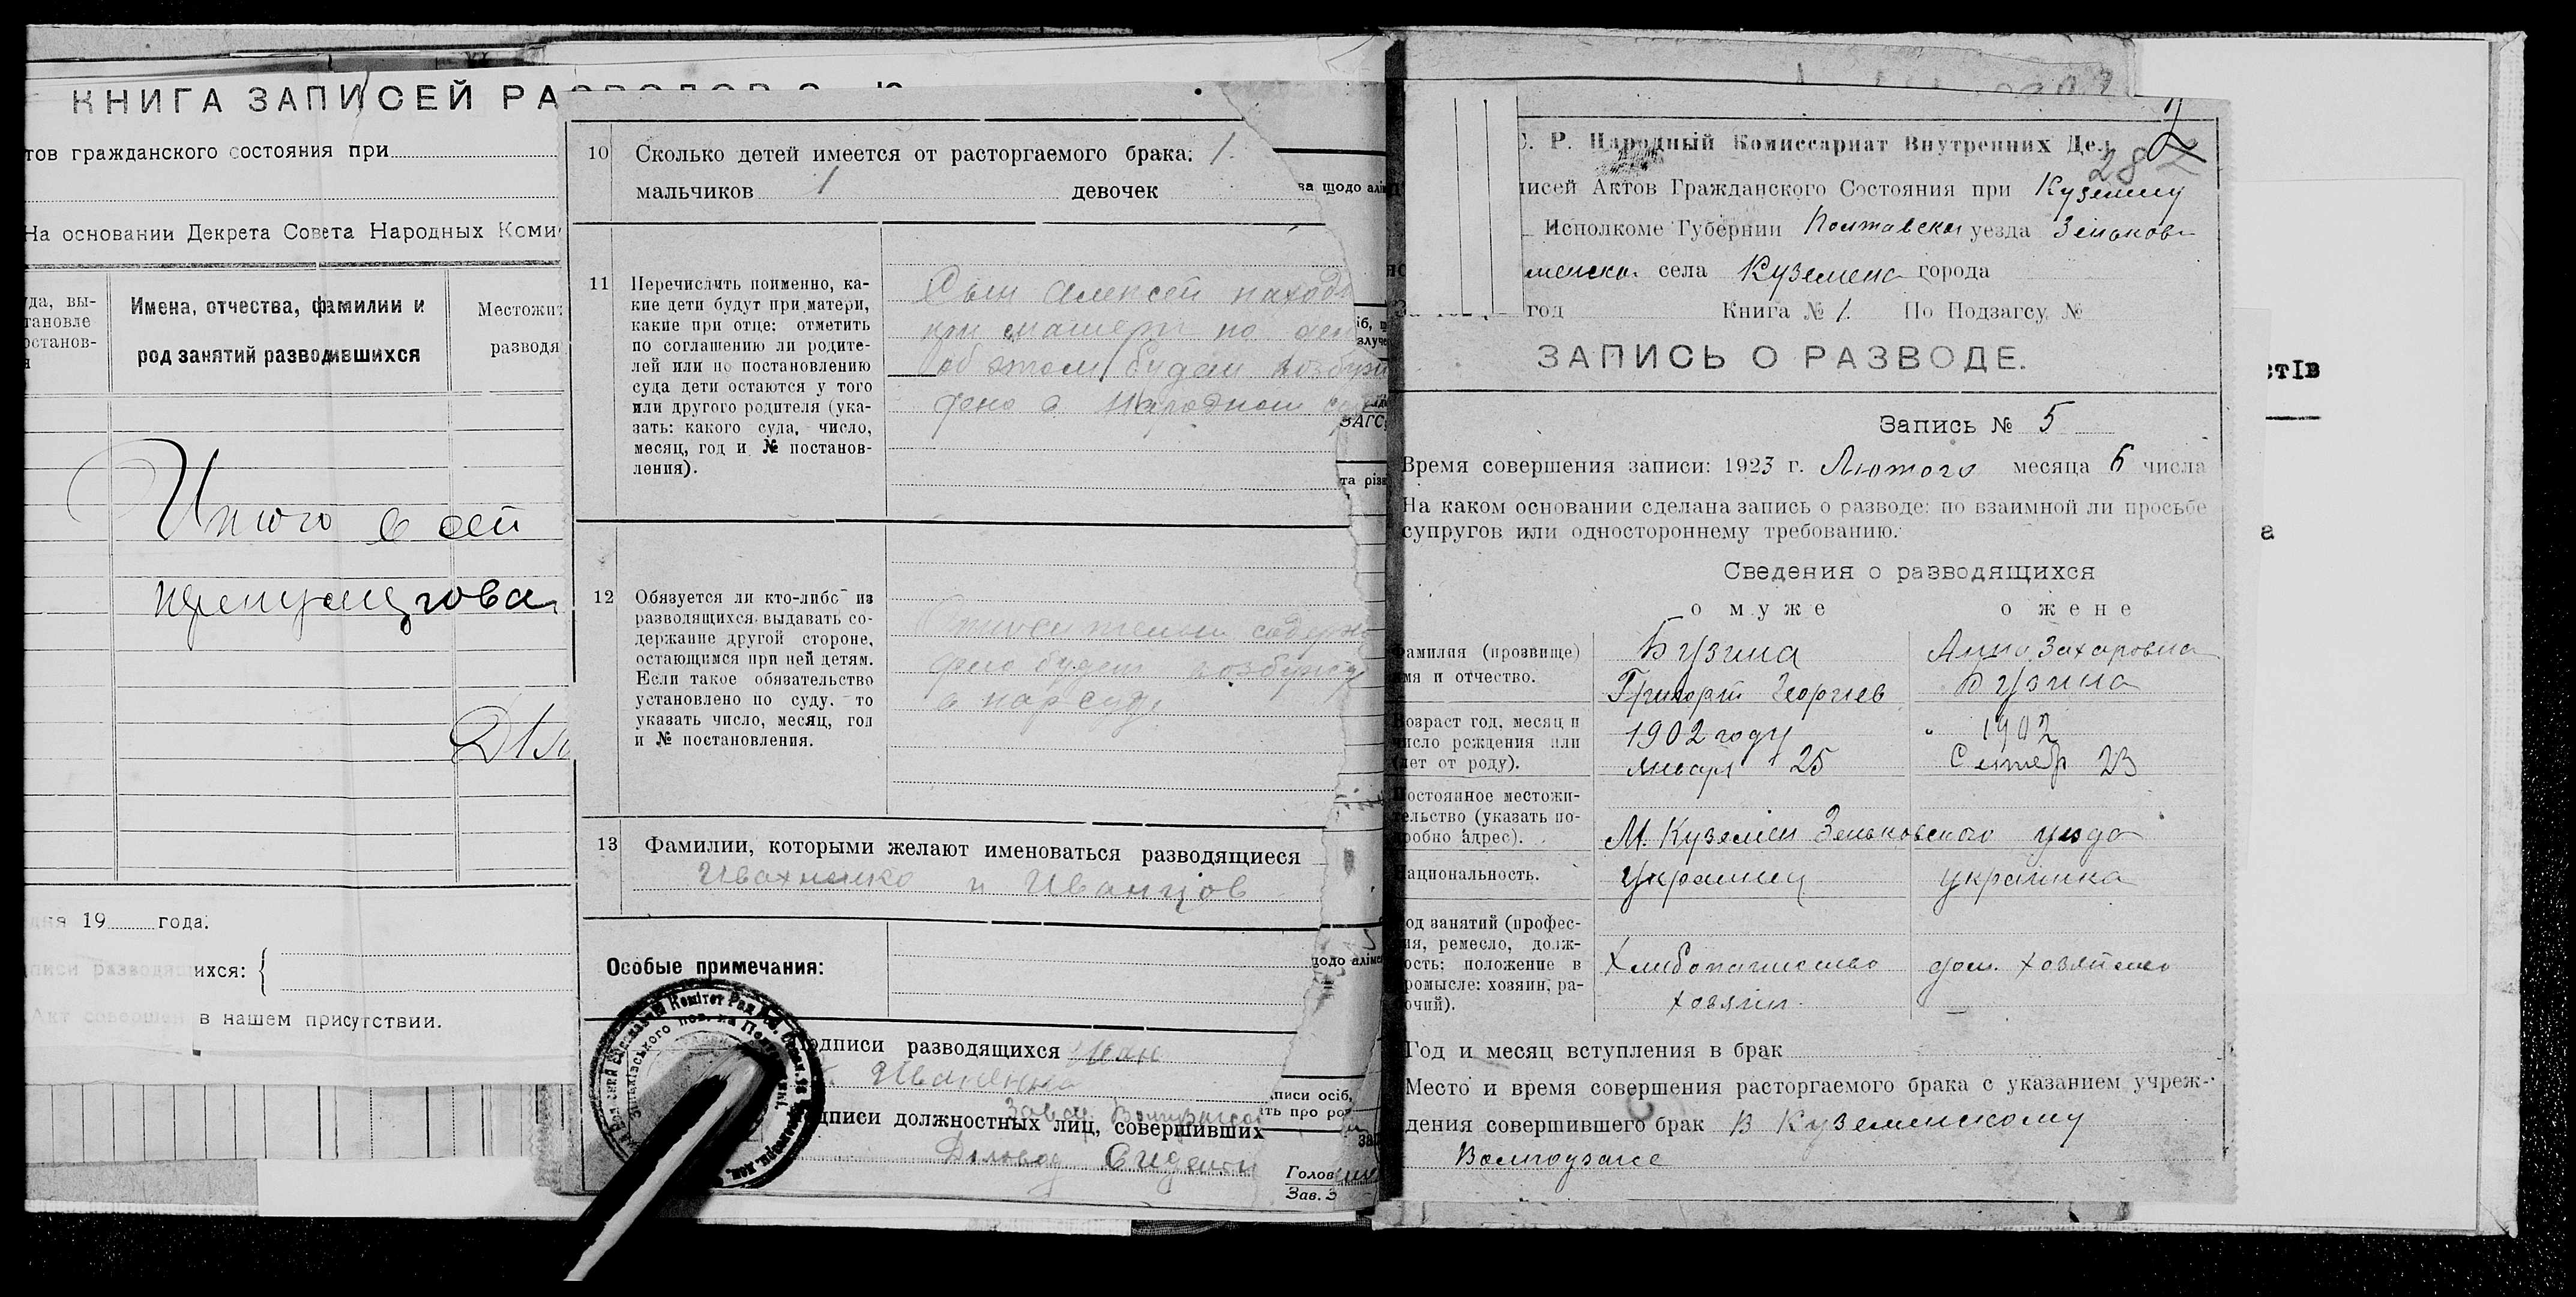 КНИГА ЗАПИСЕЙ РА
тов гражданского состояния при
На основании Декрета Совета Народных Коми
да, вы-
тановле
останов-
я
Имена, отчества, фамилии и
род занятий разводившихся
Местожит
разводя
Итого в сей
дня 19 года.
писи разводящихся:
Акт совершен в нашем присутствии.
10 Сколько детей имеется от расторгаемого брака: 1.
мальчиков 1 девочек
11 Перечислить поименно, ка-
кие дети будут при матери,
какие при отце: отметить
по соглашению ли родите-
лей или по постановлению
суда дети остаются у того
или другого родителя (ука-
зать: какого суда, число,
месяц, год и № постанов-
ления).
Сын Алексей находи
при матери но
об этом будет возбуж
дено в Народном су
12 Обязуется ли кто-либо из
разводящихся выдавать со-
держание другой стороне,
остающимся при ней детям.
Если такое обязательство
установлено по суду, то
указать число, месяц, год
и № постановления.
Относительно содерж
дело будет возбужд
в нарсуде
13 Фамилии, которыми желают именоваться разводящиеся
Ивахненко и Иванцов
Особые примечания:
одписи разводящихся
дписи должностных лиц, совершивших
Деловод
ва щодо алім
іб, щ
злуче
ЗАГС
та різв
щодо алімен
писи осіб,
ть про роз
Голов
Зав. З
С. Р. Народный Комиссариат Внутренних Дел
282
писей Актов Гражданского Состояния при Куземину
Исполкоме Губернии Полтавской уезда Зеньков
менска. села Куземена города
год Книга № 1. По Подзагсу №
ЗАПИСЬ О РАЗВОДЕ.
Запись № 5
Время совершения записи: 1923 г. Лютого месяца 6 числа
На каком основании сделана запись о разводе: по взаимной ли просьбе
супругов или одностороннему требованию.
Сведения о разводящихся
о муже о жене
Фамилия (прозвище)
имя и отчество.
Бузина
Григорий Георгиев
Анна Захаровна
Бузина
Возраст год, месяц и
число рождения или
(лет от роду).
1902 году
января 25
" 1902
Сентябр 23
Постоянное местожи-
тельство (указать по-
дробно адрес).
М. Куземен Зеньковского уезда
Национальность.
Украинец
украинка
Род занятий (профес-
ия, ремесло, долж-
ость; положение в
ромысле: хозяин, ра-
очий).
Хлибопашество
хозяин
дом. хозяйство
Год и месяц вступления в брак
Место и время совершения расторгаемого брака с указанием учреж-
дения совершившего брак В Куземенскому
Волподзагсе
стів
а